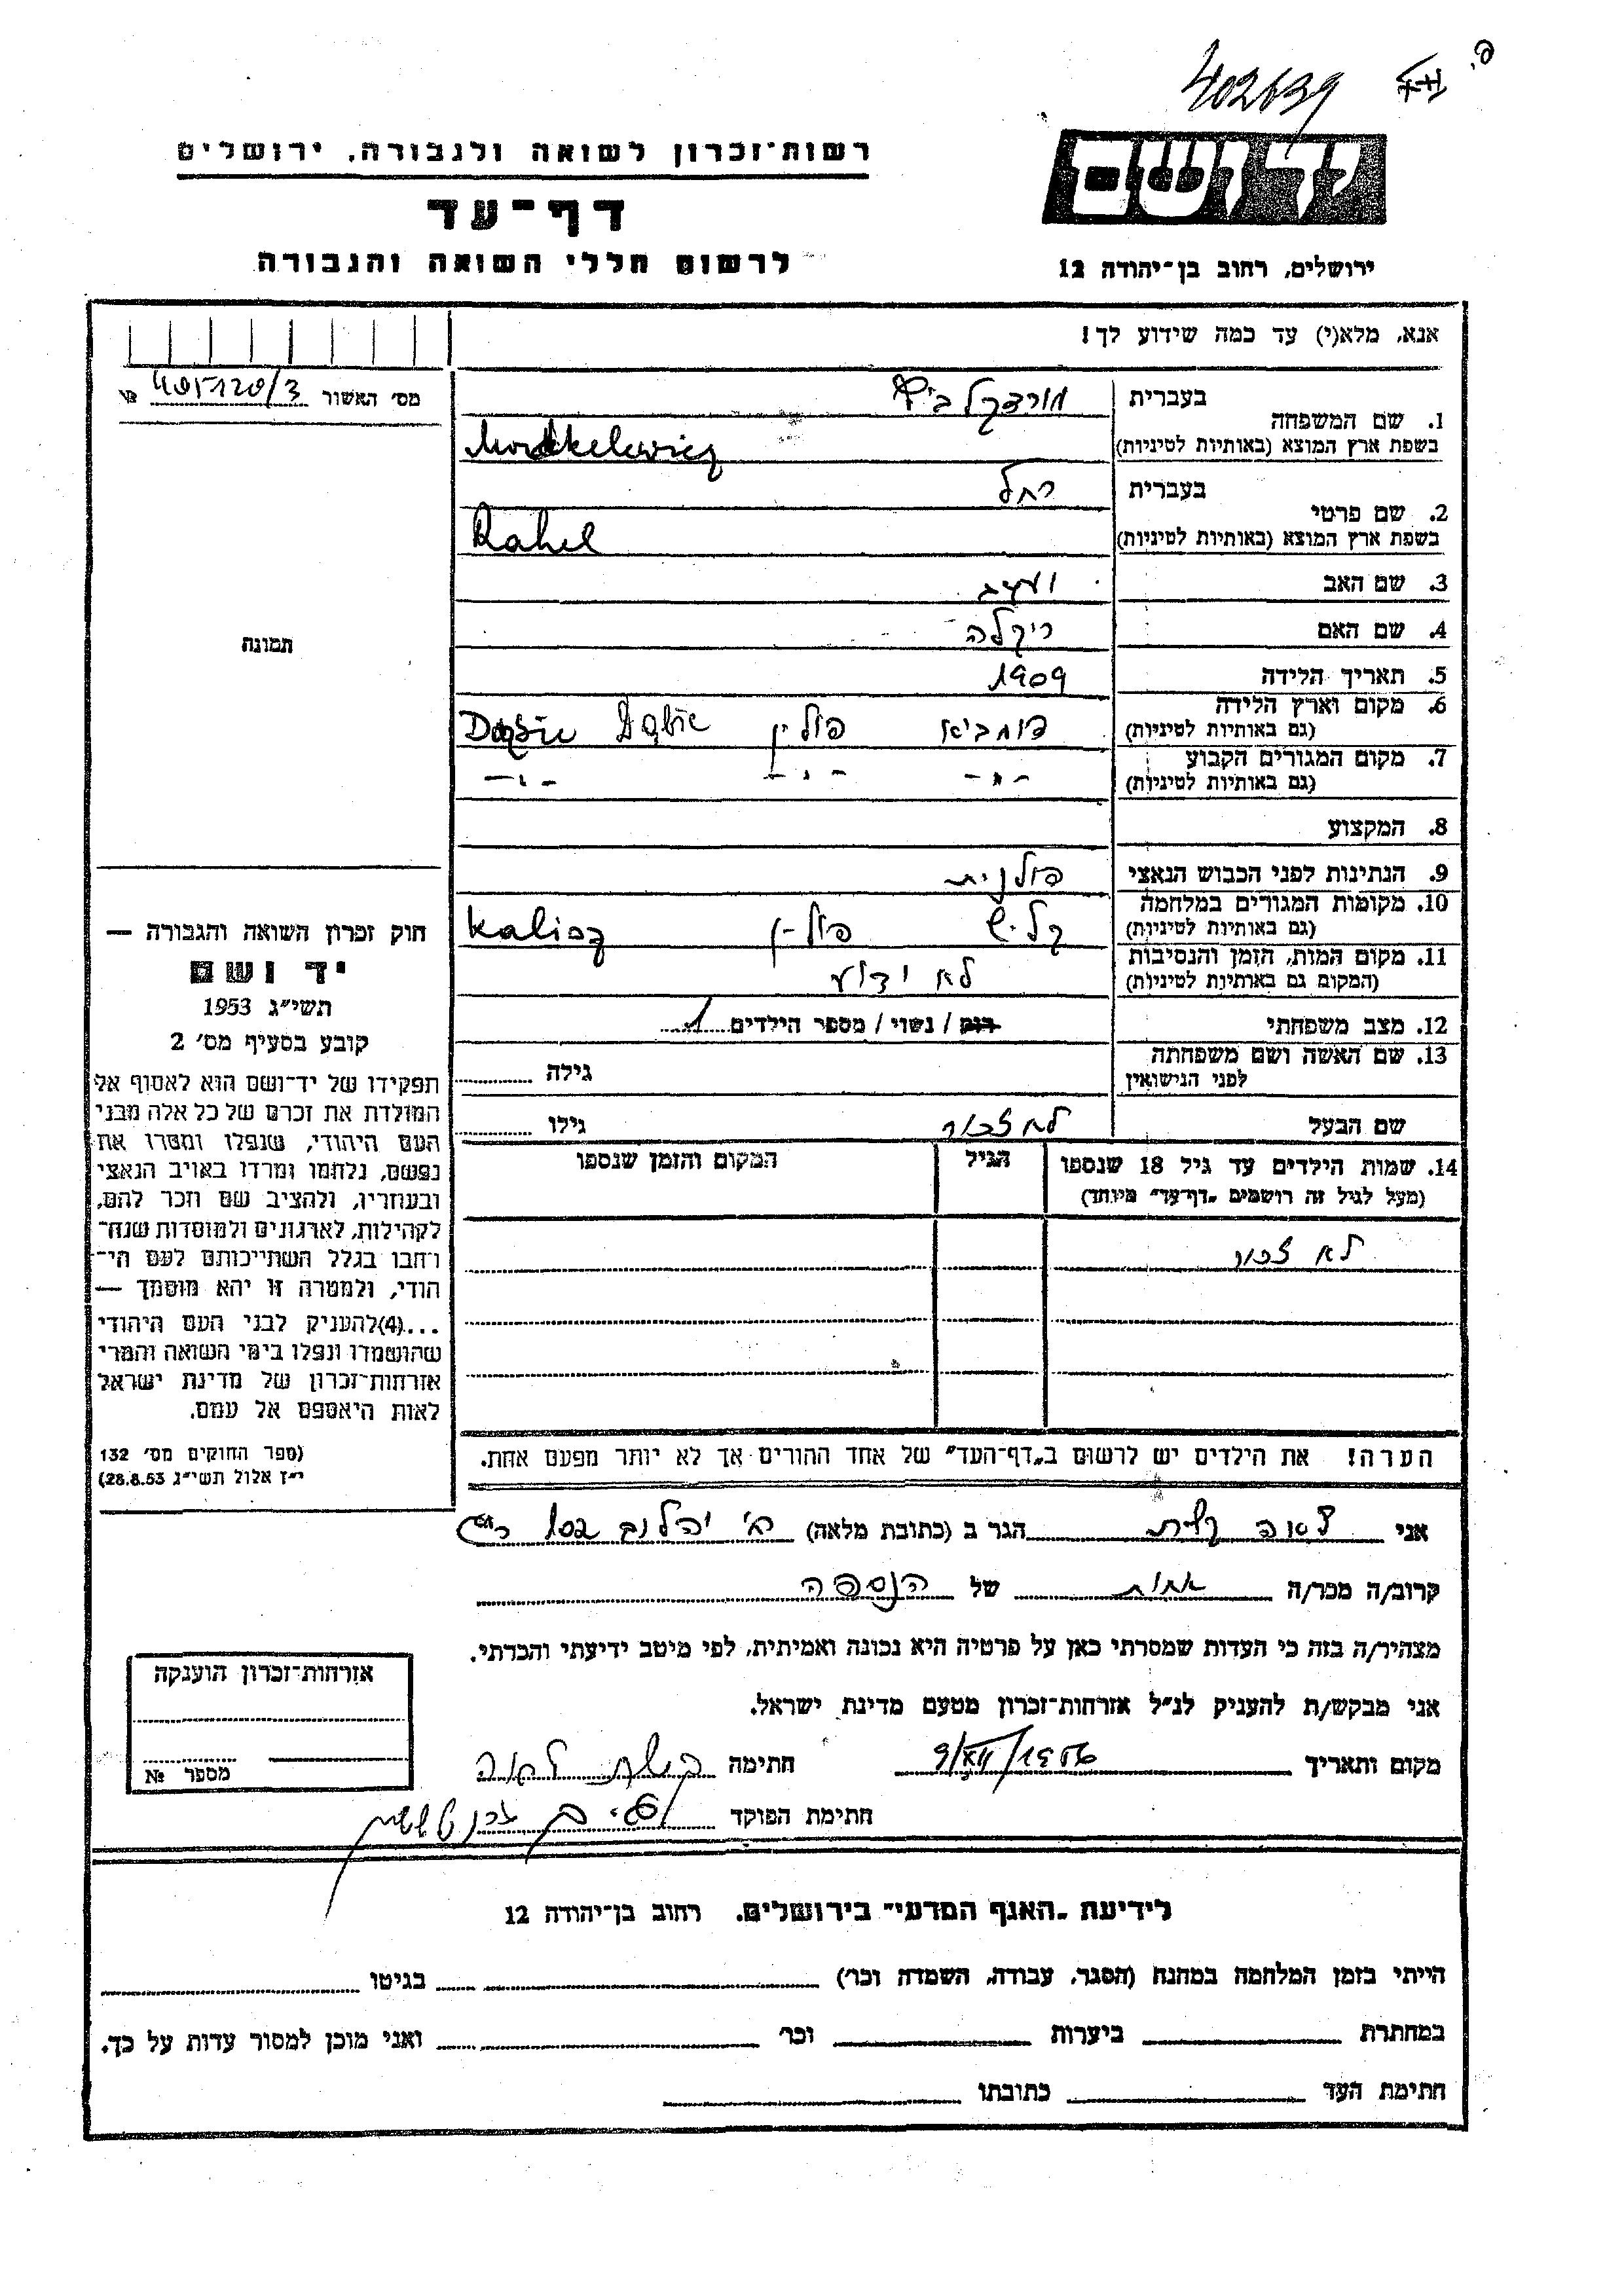 402639
רשות־זכרון לשואה ולגבורה, ירושלים
דף־עד
לרשום חללי השואה והגבורה
יד ושם
ירושלים, רחוב בן־יהודה 12
אנא, מלא(י) עד כמה שידוע לך!
מס׳ האשור 405120/3
1. שם המשפחה
בעברית
בשפת ארץ המוצא (באותיות לטיניות) Mordkelewicz
2. שם פרטי
בעברית רחל
בשפת ארץ המוצא (באותיות לטיניות) Rahel
3. שם האב
4. שם האם ריקלה
5. תאריך הלידה 1909
6. מקום וארץ הלידה
(גם באותיות לטיניות) דומביא פולין Dąbie
7. מקום המגורים הקבוע
(גם באותיות לטיניות) - " - - " - - " -
8. המקצוע
9. הנתינות לפני הכבוש הנאצי פולנית
10. מקומות המגורים במלחמה
(גם באותיות לטיניות) קליש פולין Kalisz
11. מקום המות, הזמן והנסיבות
(המקום גם באותיות לטיניות) לא ידוע
12. מצב משפחתי רוק / נשוי / מספר הילדים 1
13. שם האשה ושם משפחתה
לפני הנישואין גילה
שם הבעל לא זכור גילו
14. שמות הילדים עד גיל 18 שנספו הגיל המקום והזמן שנספו
(מעל לגיל זה רושמים „דף־עד״ מיוחד)
לא זכור
הערה! את הילדים יש לרשום ב„דף־העד״ של אחד ההורים אך לא יותר מפעם אחת.
תמונה
חוק זכרון השואה והגבורה —
יד ושם
תשי״ג 1953
קובע בסעיף מס׳ 2
תפקידו של יד־ושם הוא לאסוף אל
המולדת את זכרם של כל אלה מבני
העם היהודי, שנפלו ומסרו את
נפשם, נלחמו ומרדו באויב הנאצי
ובעוזריו, ולהציב שם וזכר להם,
לקהילות, לארגונים ולמוסדות שנח־
רובו בגלל השתייכותם לעם הי־
הודי, ולמטרה זו יהא מוסמך —
...(4)להעניק לבני העם היהודי
שהושמדו ונפלו בימי השואה והמרי
אזרחות־זכרון של מדינת ישראל
לאות היאספם אל עמם.
(ספר החוקים מס׳ 132
י״ז אלול תשי״ג 28.8.53)
אני הגר ב (כתובת מלאה)
קרוב/ה מכר/ה אחות של הנספה
מצהיר/ה בזה כי העדות שמסרתי כאן על פרטיה היא נכונה ואמיתית, לפי מיטב ידיעתי והכרתי.
אני מבקש/ת להעניק לנ״ל אזרחות־זכרון מטעם מדינת ישראל.
מקום ותאריך 9/XII/1956 חתימה
חתימת הפוקד
אזרחות־זכרון הוענקה
מספר №
לידיעת „האגף המדעי״ בירושלים. רחוב בן־יהודה 12
הייתי בזמן המלחמה במחנה (הסגר, עבודה, השמדה וכו׳) בגיטו
במחתרת ביערות וכו׳ ואני מוכן למסור עדות על כך.
חתימת העד כתובתו